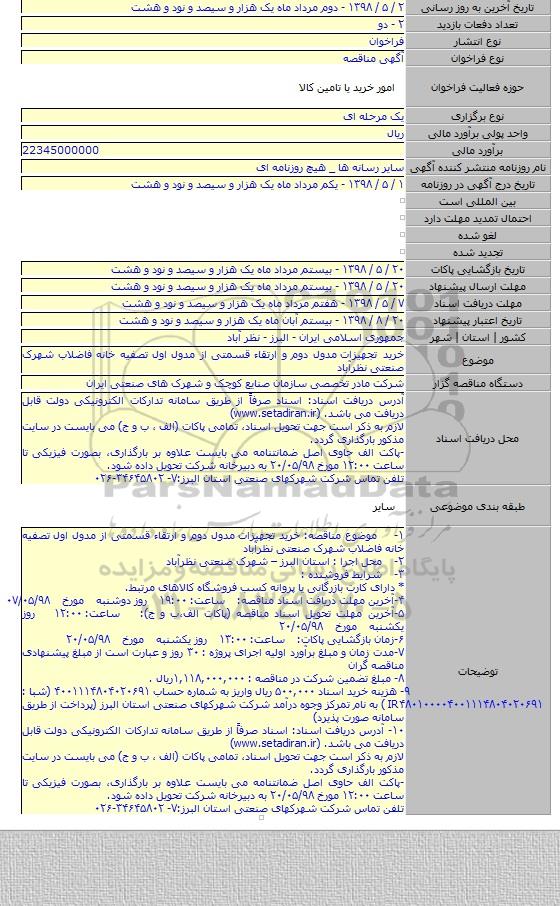 تاریخ آخرین به روز رسانی ۲ / ۵ / ۱۳۹۸ - دوم مرداد ماه یک هزار و سیصد و نود و هشت
تعداد دفعات بازدید ۲ - دو
نوع انتشار فراخوان
نوع فراخوان آگهی مناقصه
حوزه فعالیت فراخوان امور خرید یا تامین کالا
نوع برگزاری یک مرحله ای
واحد پولی برآورد مالی ریال
برآورد مالی 22345000000
نام روزنامه منتشر کننده آگهی سایر رسانه ها _ هیچ روزنامه ای
تاریخ درج آگهی در روزنامه ۱ / ۵ / ۱۳۹۸ - یکم مرداد ماه یک هزار و سیصد و نود و هشت
بین المللی است
احتمال تمدید مهلت دارد
لغو شده
تجدید شده
تاریخ بازگشایی پاکات ۲۰ / ۵ / ۱۳۹۸ - بیستم مرداد ماه یک هزار و سیصد و نود و هشت
مهلت ارسال پیشنهاد ۲۰ / ۵ / ۱۳۹۸ - بیستم مرداد ماه یک هزار و سیصد و نود و هشت
مهلت دریافت اسناد ۷ / ۵ / ۱۳۹۸ - هفتم مرداد ماه یک هزار و سیصد و نود و هشت
تاریخ اعتبار پیشنهاد ۲۰ / ۸ / ۱۳۹۸ - بیستم آبان ماه یک هزار و سیصد و نود و هشت
کشور | استان | شهر جمهوری اسلامی ایران - البرز - نظر آباد
موضوع خرید تجهیزات مدول دوم و ارتقاء قسمتی از مدول اول تصفیه خانه فاضلاب شهرک
صنعتی نظرآباد
دستگاه مناقصه گزار شرکت مادر تخصصی سازمان صنایع کوچک و شهرک های صنعتی ایران
محل دریافت اسناد
آدرس دریافت اسناد: اسناد صرفاً از طریق سامانه تدارکات الکترونیکی دولت قابل
دریافت می باشد. (www.setadiran.ir)
لازم به ذکر است جهت تحویل اسناد، تمامی پاکات (الف ، ب و ج) می بایست در سایت
مذکور بارگذاری گردد.
-پاکت الف حاوی اصل ضمانتنامه می بایست علاوه بر بارگذاری، بصورت فیزیکی تا
ساعت ۱۲:۰۰ مورخ ۲۰/۰۵/۹۸ به دبیرخانه شرکت تحویل داده شود.
تلفن تماس شرکت شهرکهای صنعتی استان البرز:۷- ۳۴۶۴۵۸۰۲-۰۲۶
ParsNamadData
طبقه بندی موضوعی سایر
توضیحات
۱- موضوع مناقصه: خرید تجهیزات مدول دوم و ارتقاء قسمتی از مدول اول تصفیه
خانه فاضلاب شهرک صنعتی نظرآباد
۲- محل اجرا : استان البرز – شهرک صنعتی نظرآباد
۳- شرایط فروشنده :
* دارای کارت بازرگانی یا پروانه کسب فروشگاه کالاهای مرتبط.
۴-آخرین مهلت دریافت اسناد مناقصه: ساعت: ۱۹:۰۰ روز دوشنبه مورخ ۰۷/۰۵/۹۸
۵-آخرین مهلت تحویل اسناد مناقصه (پاکات الف،ب و ج): ساعت: ۱۲:۰۰ روز
یکشنبه مورخ ۲۰/۰۵/۹۸
۶-زمان بازگشایی پاکات: ساعت: ۱۳:۰۰ روز یکشنبه مورخ ۲۰/۰۵/۹۸
۷-مدت زمان و مبلغ برآورد اولیه اجرای پروژه : ۳۰ روز و عبارت است از مبلغ پیشنهادی
مناقصه گران
۸- مبلغ تضمین شرکت در مناقصه : ۱,۱۱۸,۰۰۰,۰۰۰ریال .
۹- هزینه خرید اسناد ۵۰۰,۰۰۰ ریال واریز به شماره حساب ۴۰۰۱۱۱۴۸۰۴۰۲۰۶۹۱ (شبا :
IR۴۸۰۱۰۰۰۰۴۰۰۱۱۱۴۸۰۴۰۲۰۶۹۱ ) به نام تمرکز وجوه درآمد شرکت شهرکهای صنعتی استان البرز (پرداخت از طریق
سامانه صورت پذیرد)
۱۰- آدرس دریافت اسناد: اسناد صرفاً از طریق سامانه تدارکات الکترونیکی دولت قابل
دریافت می باشد. (www.setadiran.ir)
لازم به ذکر است جهت تحویل اسناد، تمامی پاکات (الف ، ب و ج) می بایست در سایت
مذکور بارگذاری گردد.
-پاکت الف حاوی اصل ضمانتنامه می بایست علاوه بر بارگذاری، بصورت فیزیکی تا
ساعت ۱۲:۰۰ مورخ ۲۰/۰۵/۹۸ به دبیرخانه شرکت تحویل داده شود.
تلفن تماس شرکت شهرکهای صنعتی استان البرز:۷- ۳۴۶۴۵۸۰۲-۰۲۶